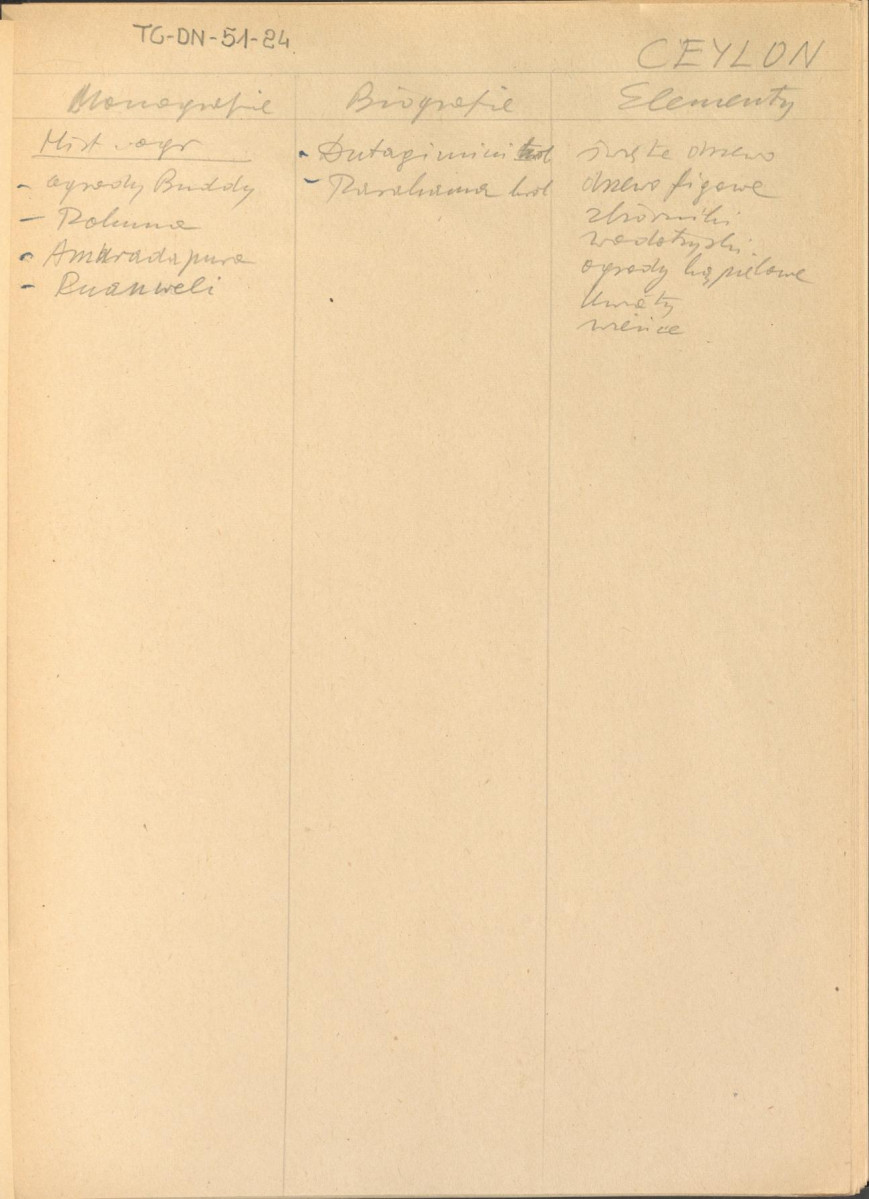 TG-DN-51-24
CEYLON
Monografie
Biografie
Elementy
Hist. ogr
- ogrody Buddy
- Rohuna
- Amuradapura
- Ruanweli
- Dutagimini król
- Parakama król
święte drzewo
drzewo figowe
zbiorniki
wodotryski
ogrody kąpielowe
kwiaty
wieńce